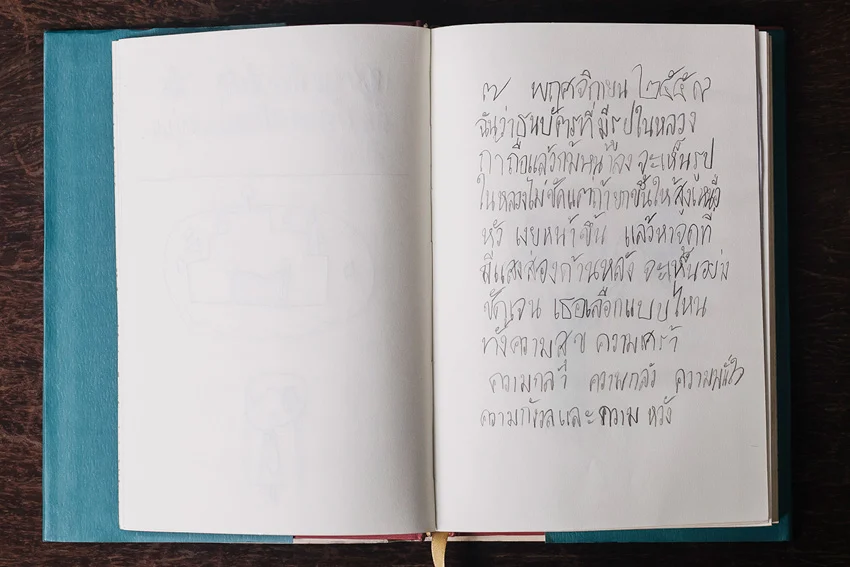 ๗ พฤศจิกายน ๒๕๕๙
ฉันว่าธนบัตรที่มีรูปในหลวง
ถ้าถือแล้วก้มหน้าลง จะเห็นรูป
ในหลวงไม่ชัดแต่ถ้ายกขึ้นให้สูงเหนือ
หัว เงยหน้าขึ้น แล้วหาจุดที่
มีแสงส่องด้านหลัง จะเห็นอย่าง
ชัดเจน เธอเลือกแบบไหน
ทั้งความสุข ความเศร้า
ความกล้า ความกลัว ความมั่นใจ
ความกังวลและความ หวัง